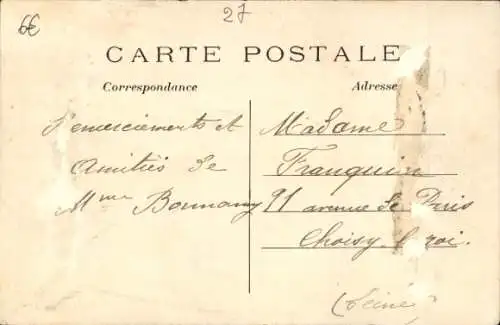 6€
27
CARTE POSTALE
Correspondance
Adresse
Remerciements et
Amitiés de
Mme Bonnamy
Madame
Franquin
91 avenue de Paris
Choisy le roi.
(Seine)